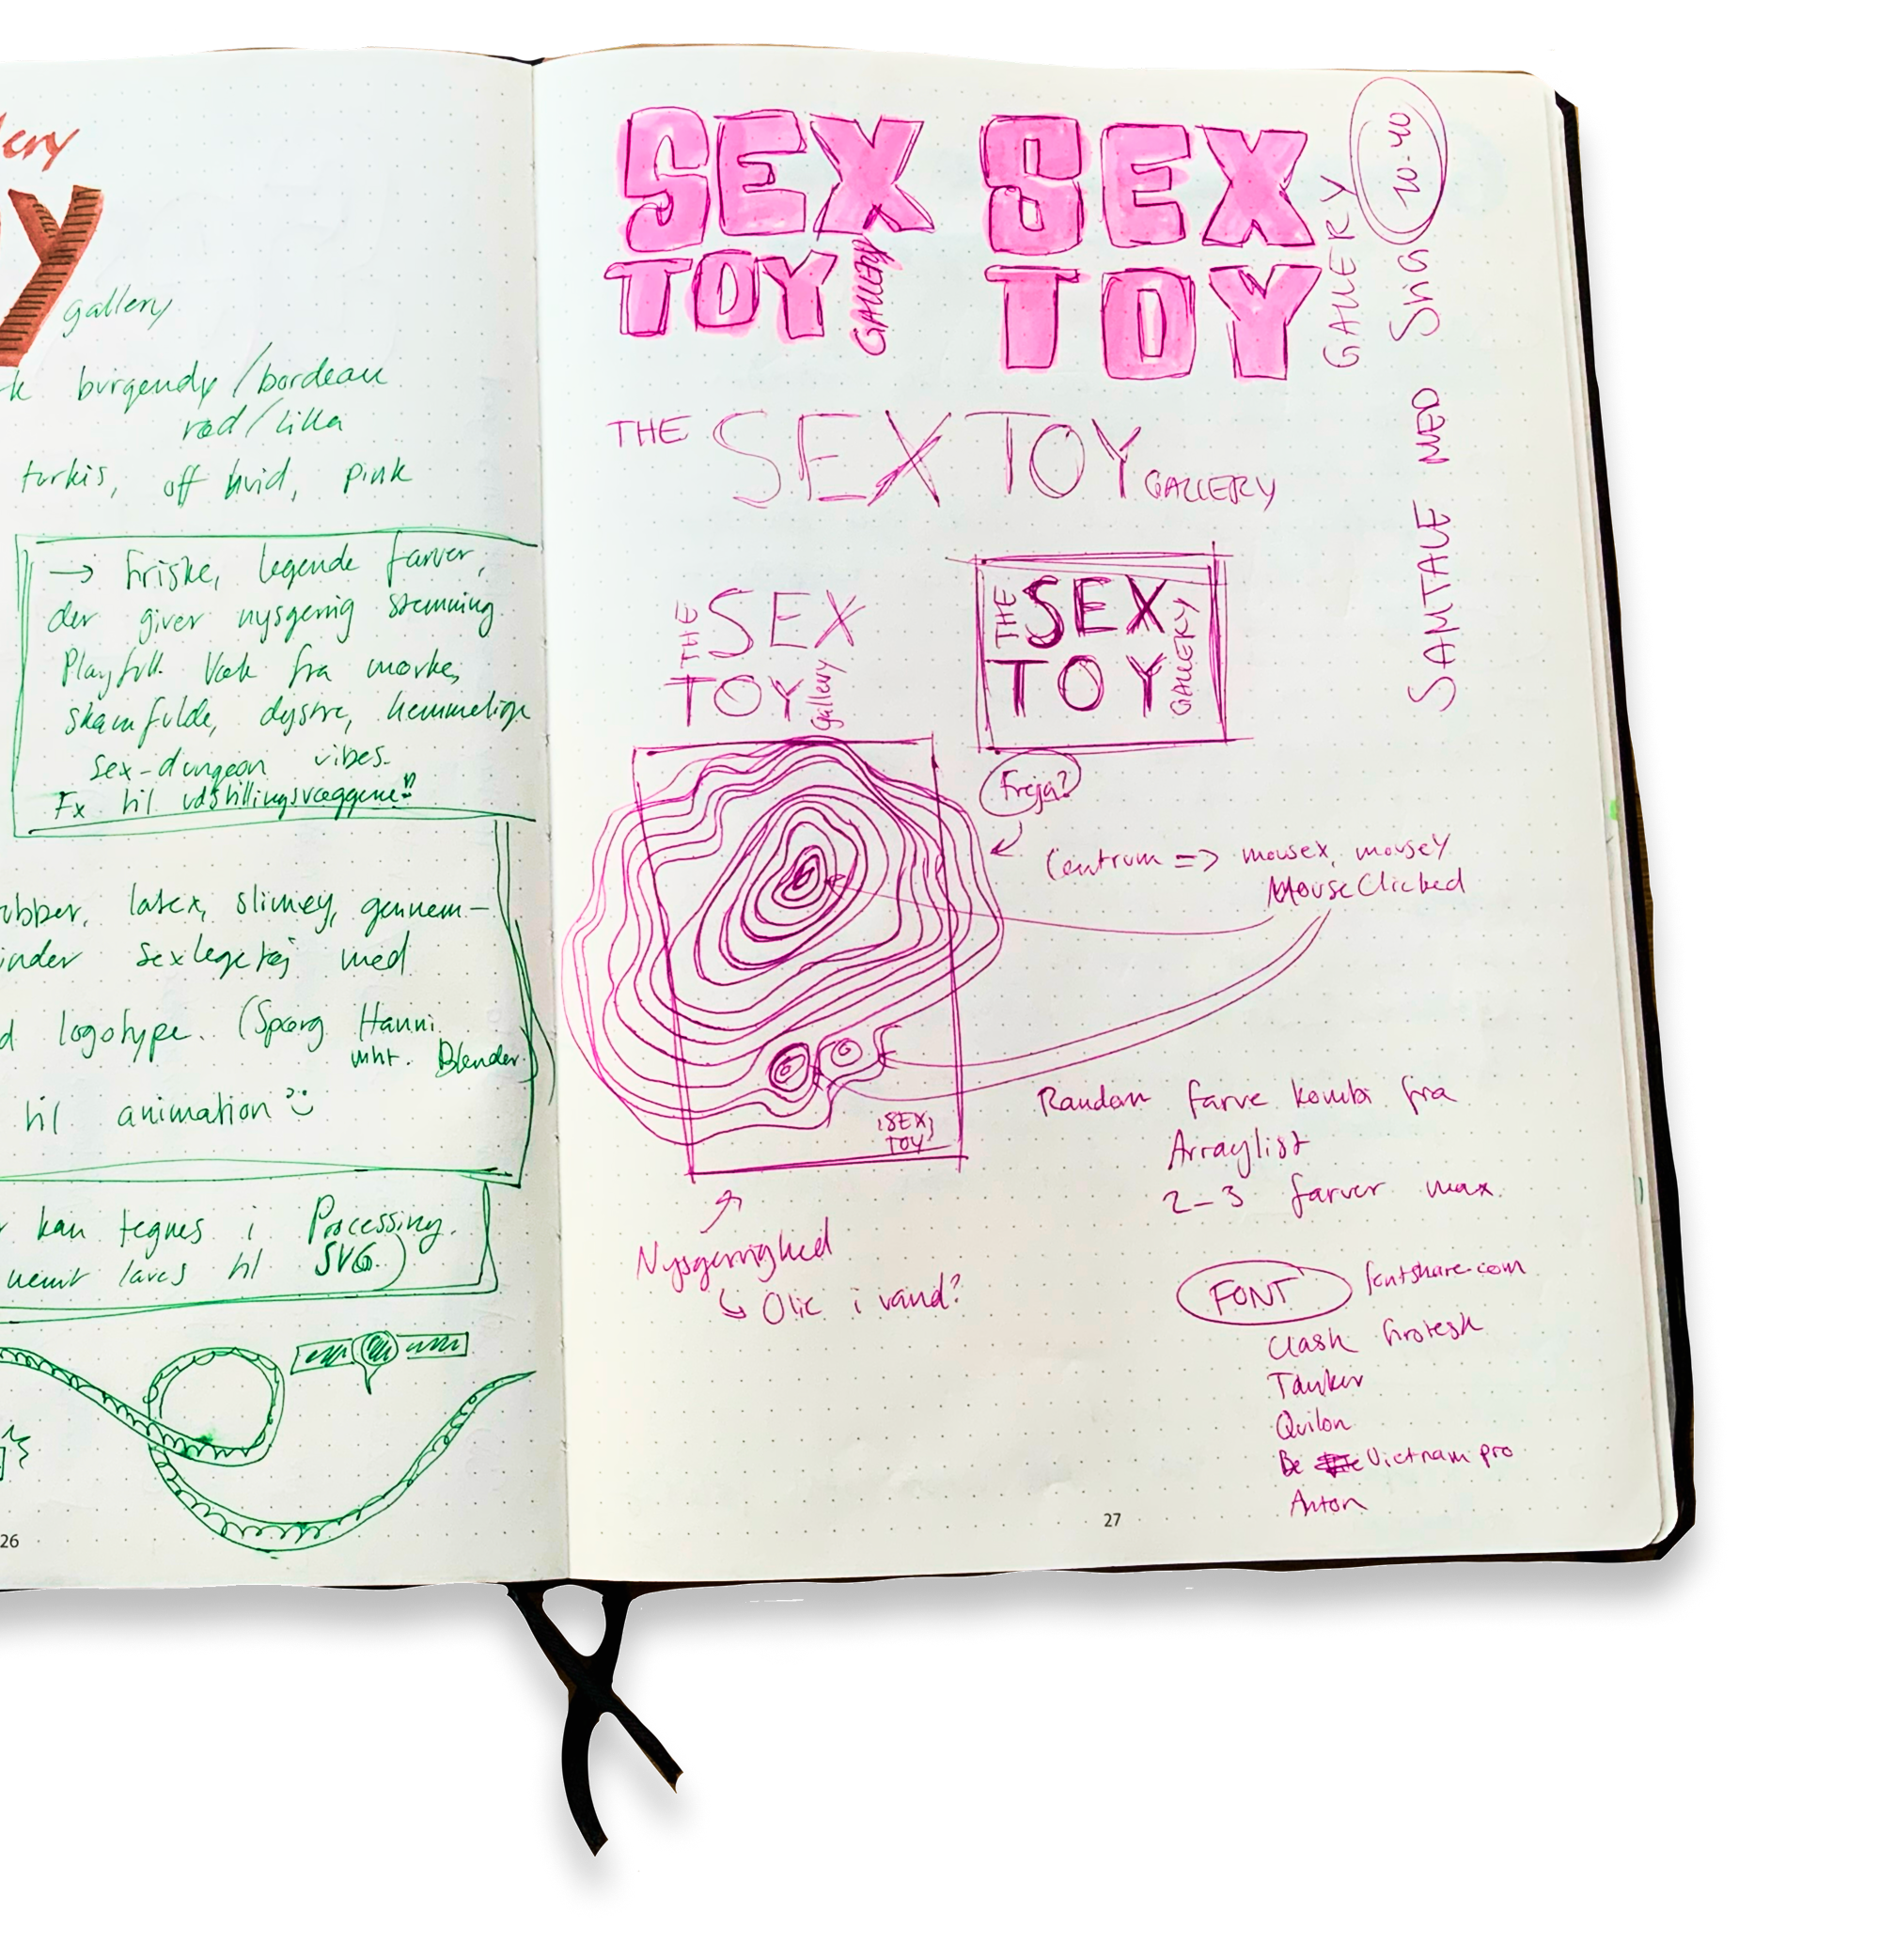 gallery
burgendy/bordeau
rød/lilla
turkis, off hvid, pink
→ Friske, legende farver,
der giver nysgerrig stemning
Playfull Væk fra mørke,
skamfulde, dystre, hemmelige
sex-dungeon vibes.
Fx til udstillingsvæggene!!
latex, slimey, gennem-
sexlegetøj med
logotype. (Spørg Hanni
mht. Blender)
til animation
kan tegnes i Processing.
nemt laves til SVG.)
26
SEX
TOY
GALLERY
SEX
TOY
GALLERY
THE SEX TOY GALLERY
THE SEX
TOY gallery
THE SEX
TOY GALLERY
SAMTALE MED
Freja?
Centrum => mousex, mousey
MouseClicked
SEX
TOY
Random farve kombi fra
Arraylist
2-3 farver max
Nysgerrighed
↳ Olie i vand?
FONT fontshare.com
Clash Grotesk
Tanker
Quilon
Be Vietnam pro
Anton
27